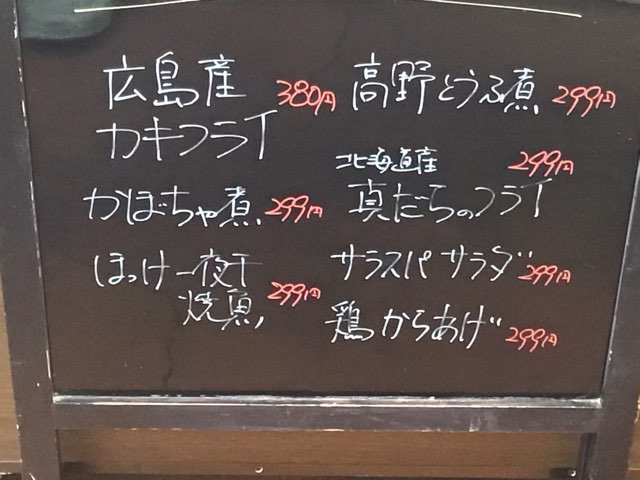 広島産 380円
カキフライ
かぼちゃ煮 299円
ほっけ一夜干
焼魚 299円
高野とうふ煮 299円
北海道産 299円
真だらのフライ
サラスパサラダ 299円
鶏からあげ 299円